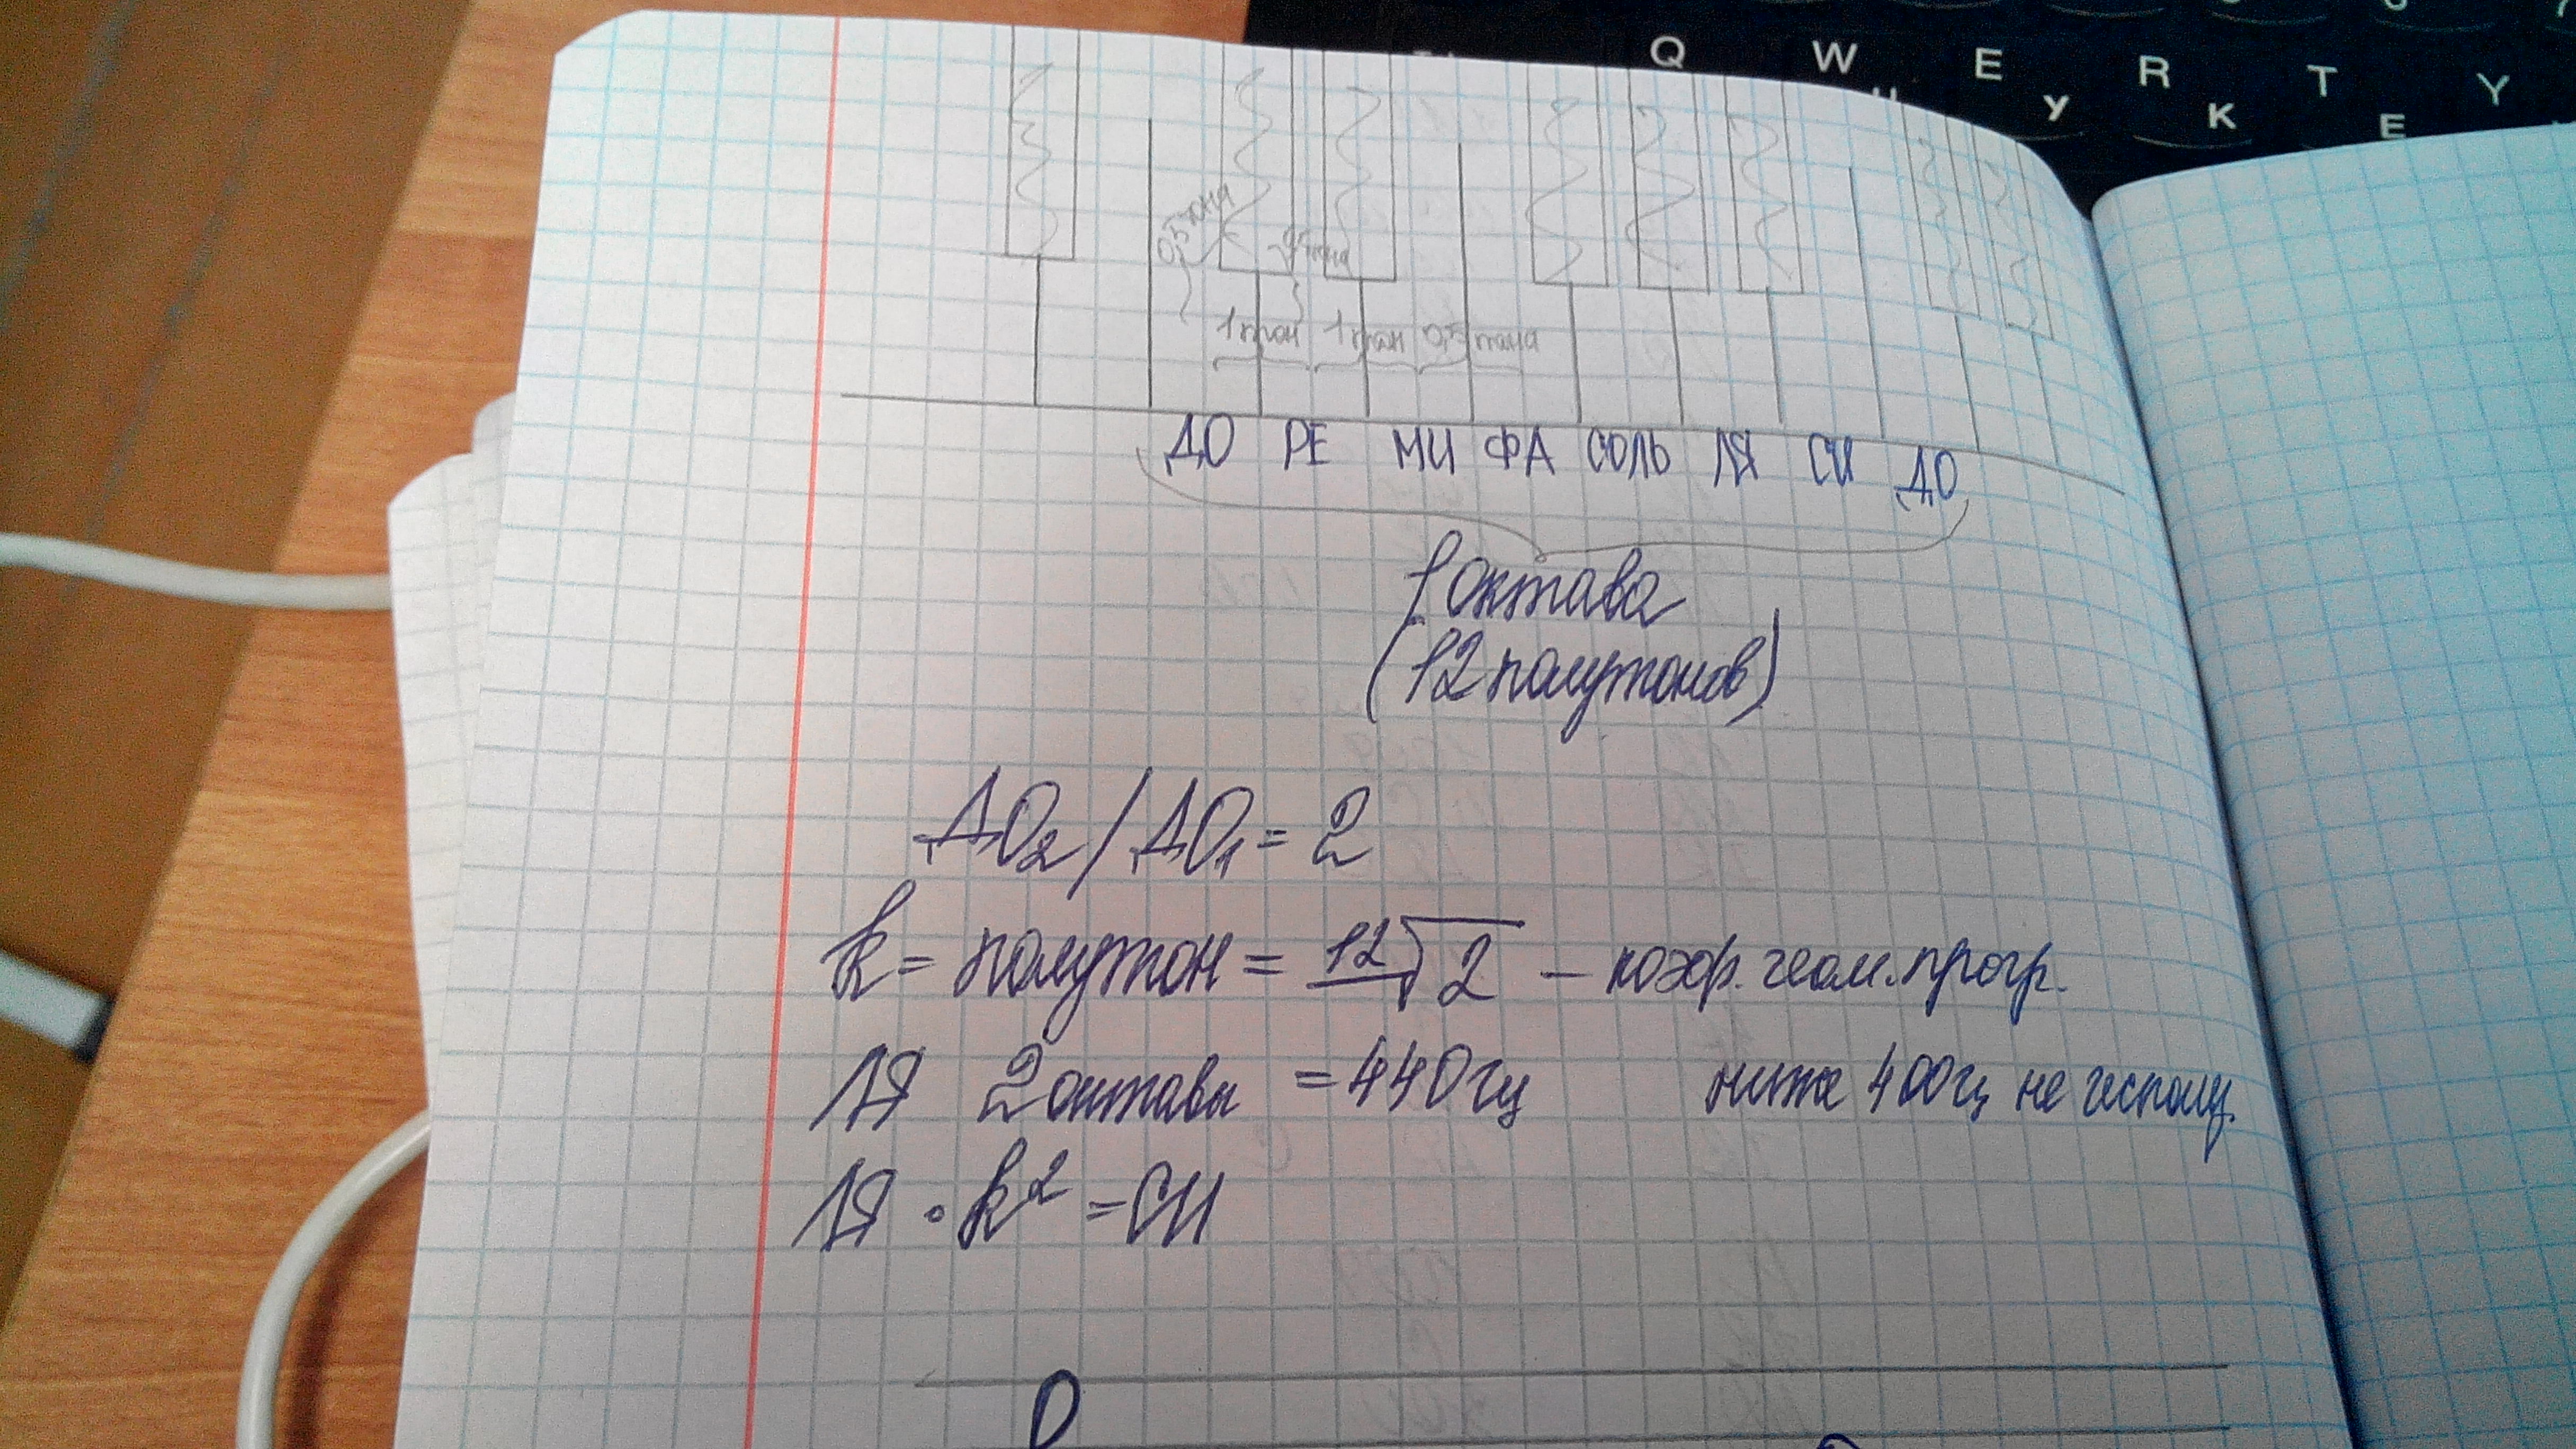 Q W E R T Y
У К Е
0,5 тона 0,5 тона
1 тон 1 тон 0,5 тона
ДО РЕ МИ ФА СОЛЬ ЛЯ СИ ДО
1 октава
(12 полутонов)
ДО₂/ДО₁ = 2
k = полутон = ¹²√2 – коэф. геом. прогр.
ЛЯ 2 октавы = 440 гц ниже 400 гц не использ.
ЛЯ · k² = СИ